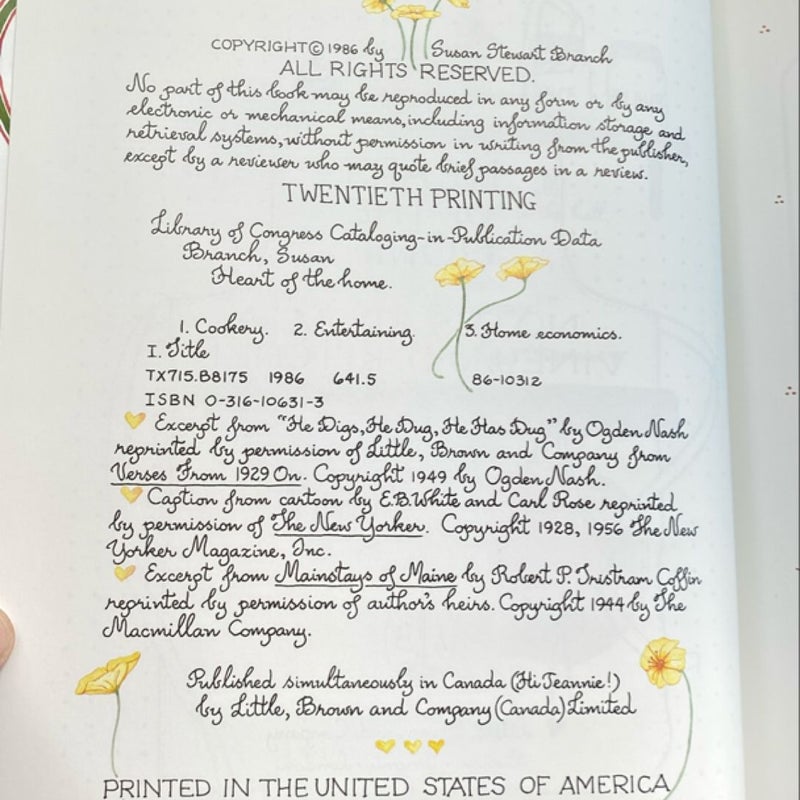 COPYRIGHT © 1986 by Susan Stewart Branch
ALL RIGHTS RESERVED.
No part of this book may be reproduced in any form or by any
electronic or mechanical means, including information storage and
retrieval systems, without permission in writing from the publisher,
except by a reviewer who may quote brief passages in a review.
TWENTIETH PRINTING
Library of Congress Cataloging-in-Publication Data
Branch, Susan
Heart of the home.
1. Cookery. 2. Entertaining. 3. Home economics.
I. Title
TX715.B8175 1986 641.5 86-10312
ISBN 0-316-10631-3
Excerpt from "He Digs, He Dug, He Has Dug" by Ogden Nash
reprinted by permission of Little, Brown and Company from
Verses From 1929 On. Copyright 1949 by Ogden Nash.
Caption from cartoon by E.B. White and Carl Rose reprinted
by permission of The New Yorker. Copyright 1928, 1956 The New
Yorker Magazine, Inc.
Excerpt from Mainstays of Maine by Robert P. Tristram Coffin
reprinted by permission of author's heirs. Copyright 1944 by The
Macmillan Company.
Published simultaneously in Canada (Hi Jeannie!)
by Little, Brown and Company (Canada) Limited
PRINTED IN THE UNITED STATES OF AMERICA